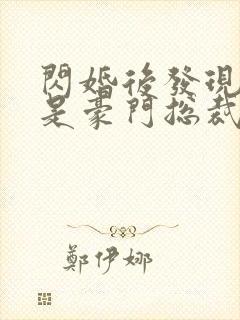 閃婚後發現
是豪門總裁
鄭伊娜